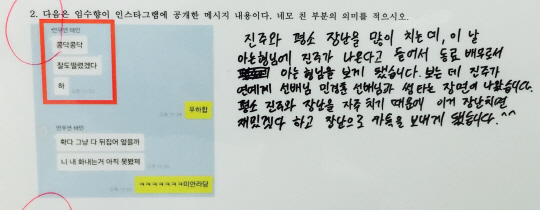 2. 다음은 임수향이 인스타그램에 공개한 메시지 내용이다. 네모 친 부분의 의미를 적으시오.
민우연 태인
콩닥콩닥
잘도떨렸겠다
하
무하합
민우연 태인
확다 그냥 다 뒤집어 엎을까
니 내 화내는거 아직 못봤제
ㅋㅋㅋㅋㅋㅋㅋ미안라달
진주와 평소 장난을 많이 치는데, 이 날
아는형님에 진주가 나온다고 들어서 동료 배우로서
아는 형님을 보게 됐습니다. 보는 데 진주가
연예계 선배님 민경훈 선배님과 썸타는 장면이 나왔습니다.
평소 진주와 장난을 자주 치기 때문에 이거 장난치면
재밌겠다 하고 장난으로 카톡을 보내게 됐습니다.^^